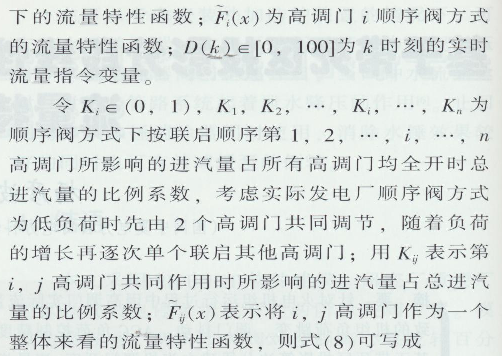 下的流量特性函数；F̃ᵢ(x)为高调门 i 顺序阀方式
的流量特性函数；D(k)∈[0，100]为 k 时刻的实时
流量指令变量。
令 Kᵢ∈(0，1)，K₁，K₂，…，Kᵢ，…，Kₙ 为
顺序阀方式下按联启顺序第 1，2，…，i，…，n
高调门所影响的进汽量占所有高调门均全开时总
进汽量的比例系数，考虑实际发电厂顺序阀方式
为低负荷时先由 2 个高调门共同调节，随着负荷
的增长再逐次单个联启其他高调门；用 Kᵢⱼ 表示第
i，j 高调门共同作用时所影响的进汽量占总进汽
量的比例系数；F̃ᵢⱼ(x)表示将 i，j 高调门作为一个
整体来看的流量特性函数，则式(8)可写成